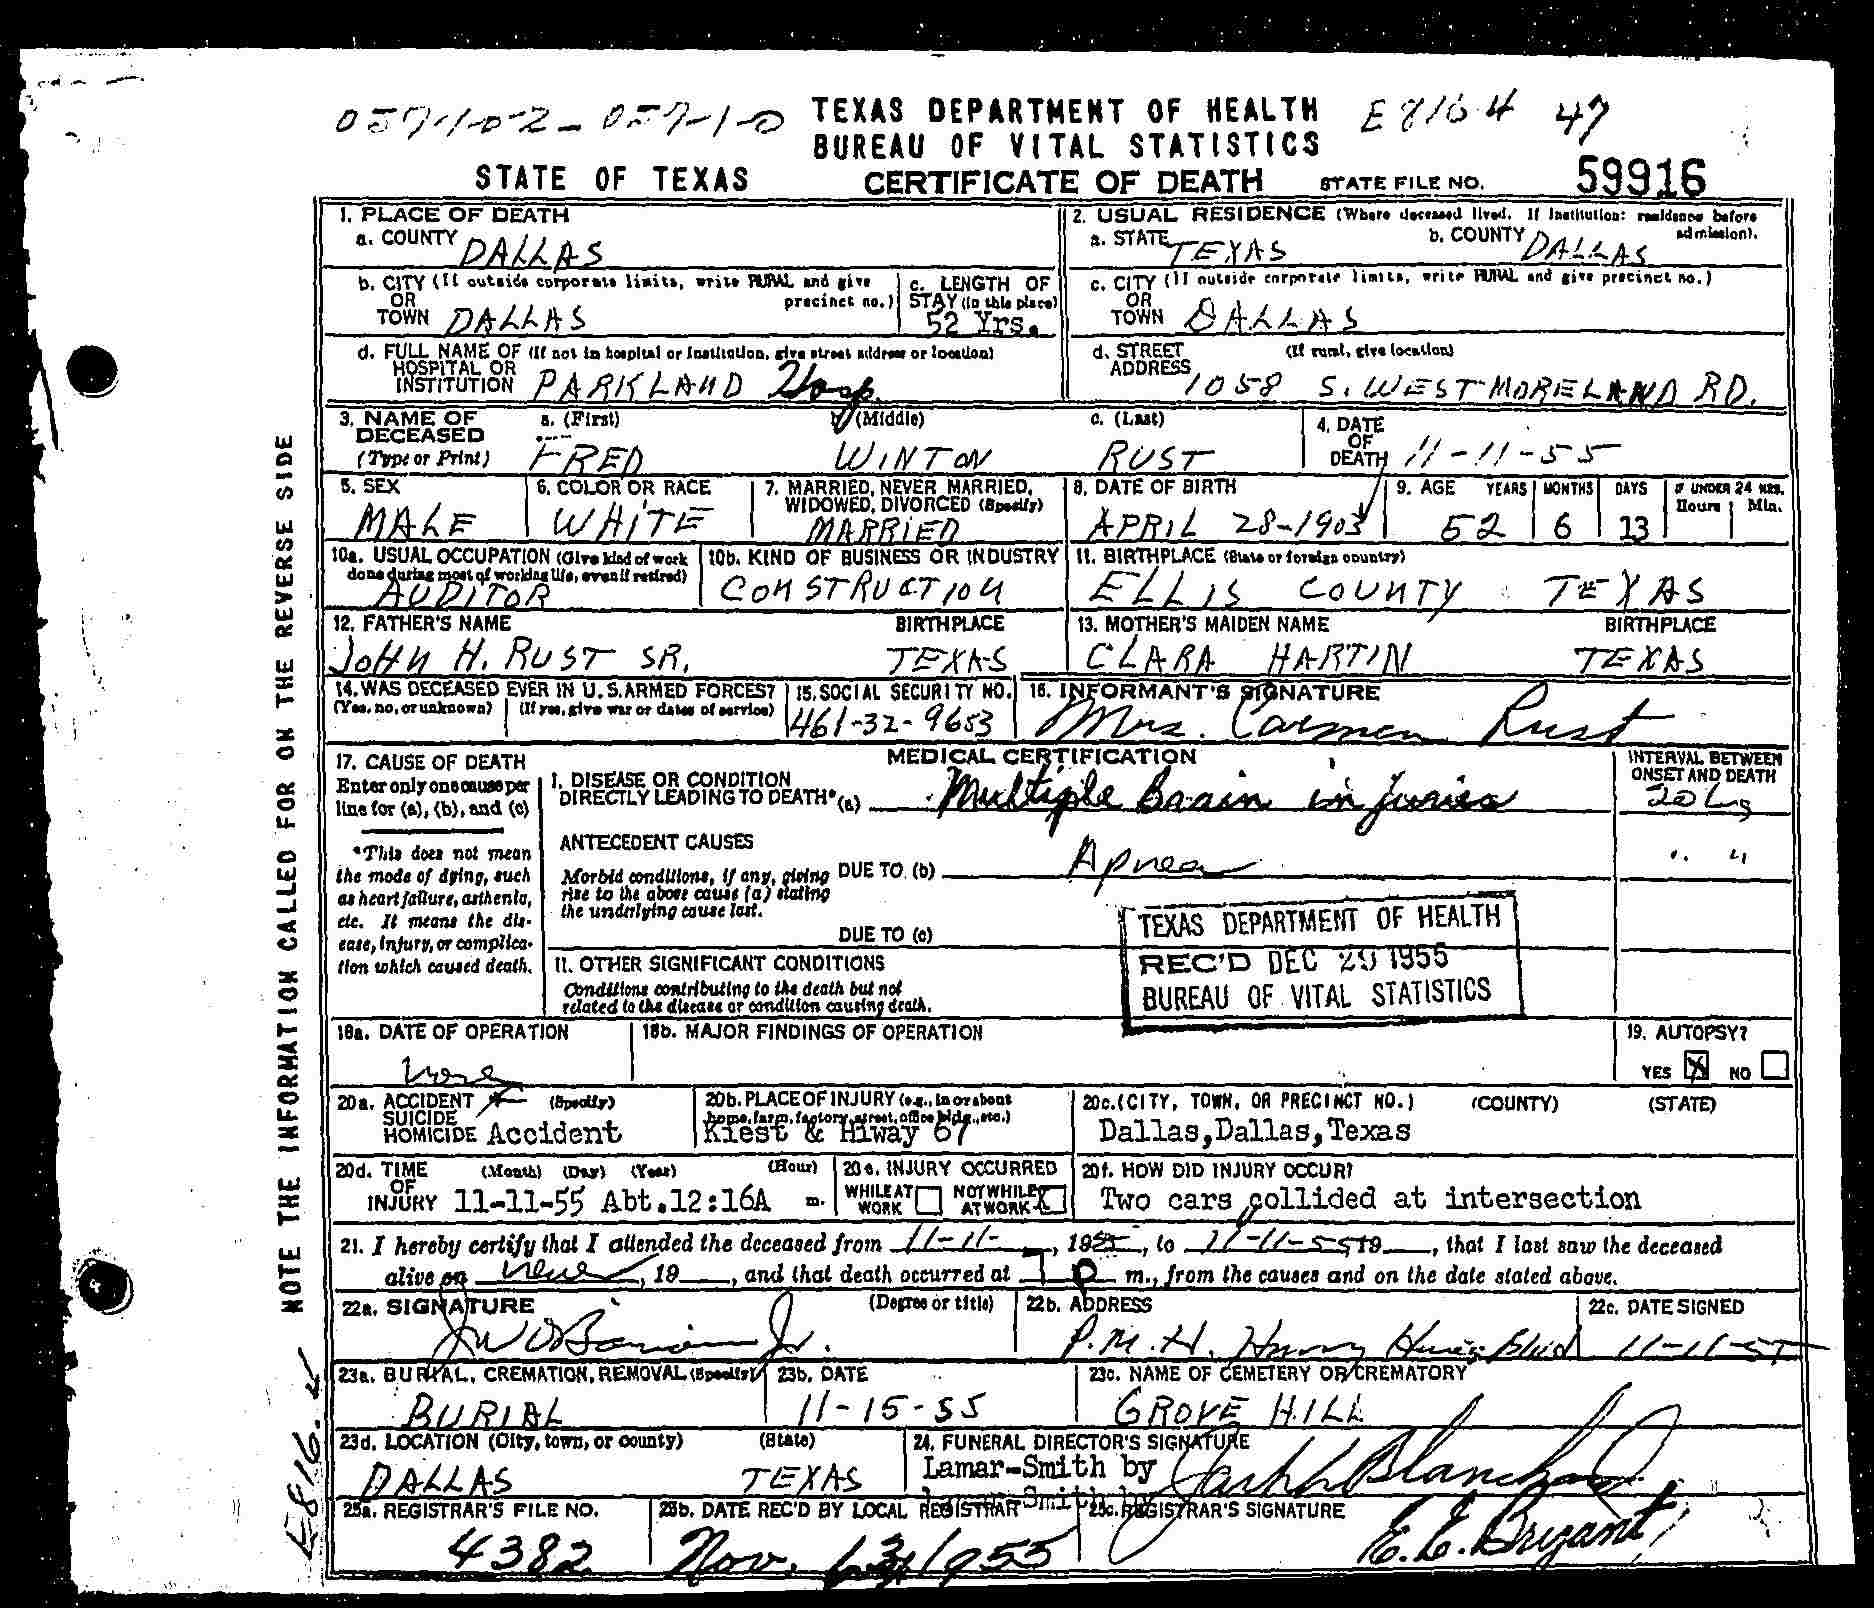 057-1-02-057-1-0 TEXAS DEPARTMENT OF HEALTH E8164 47
BUREAU OF VITAL STATISTICS
STATE OF TEXAS CERTIFICATE OF DEATH STATE FILE NO. 59916
1. PLACE OF DEATH
a. COUNTY DALLAS
2. USUAL RESIDENCE (Where deceased lived. If Institution: residence before admission).
a. STATE TEXAS b. COUNTY DALLAS
b. CITY (If outside corporate limits, write RURAL and give precinct no.)
OR TOWN DALLAS
c. LENGTH OF STAY (in this place) 52 Yrs.
c. CITY (If outside corporate limits, write RURAL and give precinct no.)
OR TOWN DALLAS
d. FULL NAME OF (If not in hospital or Institution, give street address or location)
HOSPITAL OR INSTITUTION PARKLAND Hosp.
d. STREET ADDRESS (If rural, give location)
1058 S. WESTMORELAND RD.
3. NAME OF DECEASED (Type or Print)
a. (First) FRED b. (Middle) WINTON c. (Last) RUST
4. DATE OF DEATH 11-11-55
5. SEX MALE
6. COLOR OR RACE WHITE
7. MARRIED, NEVER MARRIED, WIDOWED, DIVORCED (Specify) MARRIED
8. DATE OF BIRTH APRIL 28-1903
9. AGE YEARS 52 MONTHS 6 DAYS 13 IF UNDER 24 HRS. Hours Min.
10a. USUAL OCCUPATION (Give kind of work done during most of working life, even if retired) AUDITOR
10b. KIND OF BUSINESS OR INDUSTRY CONSTRUCTION
11. BIRTHPLACE (State or foreign country) ELLIS COUNTY TEXAS
12. FATHER'S NAME BIRTHPLACE
JOHN H. RUST SR. TEXAS
13. MOTHER'S MAIDEN NAME BIRTHPLACE
CLARA HARTIN TEXAS
14. WAS DECEASED EVER IN U.S. ARMED FORCES?
(Yes, no, or unknown) (If yes, give war or dates of service)
15. SOCIAL SECURITY NO. 461-32-9653
16. INFORMANT'S SIGNATURE Mrs. Carmen Rust
MEDICAL CERTIFICATION
17. CAUSE OF DEATH
Enter only one cause per line for (a), (b), and (c)
*This does not mean the mode of dying, such as heart failure, asthenia, etc. It means the disease, injury, or complication which caused death.
I. DISEASE OR CONDITION DIRECTLY LEADING TO DEATH* (a) Multiple Brain injuries
INTERVAL BETWEEN ONSET AND DEATH
ANTECEDENT CAUSES
Morbid conditions, if any, giving rise to the above cause (a) stating the underlying cause last.
DUE TO (b) Apnea " "
DUE TO (c)
II. OTHER SIGNIFICANT CONDITIONS
Conditions contributing to the death but not related to the disease or condition causing death.
TEXAS DEPARTMENT OF HEALTH
REC'D DEC 29 1955
BUREAU OF VITAL STATISTICS
18a. DATE OF OPERATION none
18b. MAJOR FINDINGS OF OPERATION
19. AUTOPSY?
YES X NO
20a. ACCIDENT (Specify)
SUICIDE
HOMICIDE Accident
20b. PLACE OF INJURY (e.g., in or about home, farm, factory, street, office bldg., etc.)
Kiest & Hiway 67
20c. (CITY, TOWN, OR PRECINCT NO.) (COUNTY) (STATE)
Dallas, Dallas, Texas
20d. TIME OF INJURY (Month) (Day) (Year) (Hour)
11-11-55 Abt. 12:16A m.
20e. INJURY OCCURRED
WHILE AT WORK NOT WHILE AT WORK X
20f. HOW DID INJURY OCCUR?
Two cars collided at intersection
21. I hereby certify that I attended the deceased from 11-11-, 1955, to 11-11-55 19, that I last saw the deceased
alive on never, 19, and that death occurred at P m., from the causes and on the date stated above.
22a. SIGNATURE (Degree or title)
22b. ADDRESS P.M.H. Harry Hines Blvd
22c. DATE SIGNED 11-11-55
23a. BURIAL, CREMATION, REMOVAL (Specify) BURIAL
23b. DATE 11-15-55
23c. NAME OF CEMETERY OR CREMATORY GROVE HILL
23d. LOCATION (City, town, or county) (State)
DALLAS TEXAS
24. FUNERAL DIRECTOR'S SIGNATURE
Lamar-Smith by
Lamar-Smith by
25a. REGISTRAR'S FILE NO. 4382
25b. DATE REC'D BY LOCAL REGISTRAR Nov. 1955
25c. REGISTRAR'S SIGNATURE E. E. Bryant
NOTE THE INFORMATION CALLED FOR ON THE REVERSE SIDE
E816.4